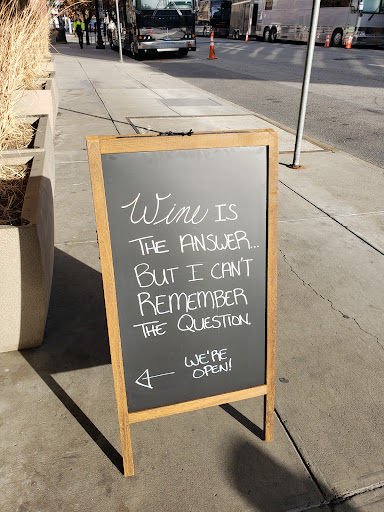 Wine IS
THE ANSWER...
BUT I CAN'T
REMEMBER
THE QUESTION.
WE'RE
OPEN!